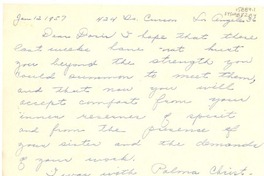 Jan 12 1957 424 So. Curson Los Angeles 36
Dear Doris: I hope that these
last weeks have not hurt
you beyond the strength you
could summon to meet them,
and that now you will
accept comfort from your
inner reserves of spirit
and from the presence of
your sister and the demands
of your work.
I was with Paloma Christ-